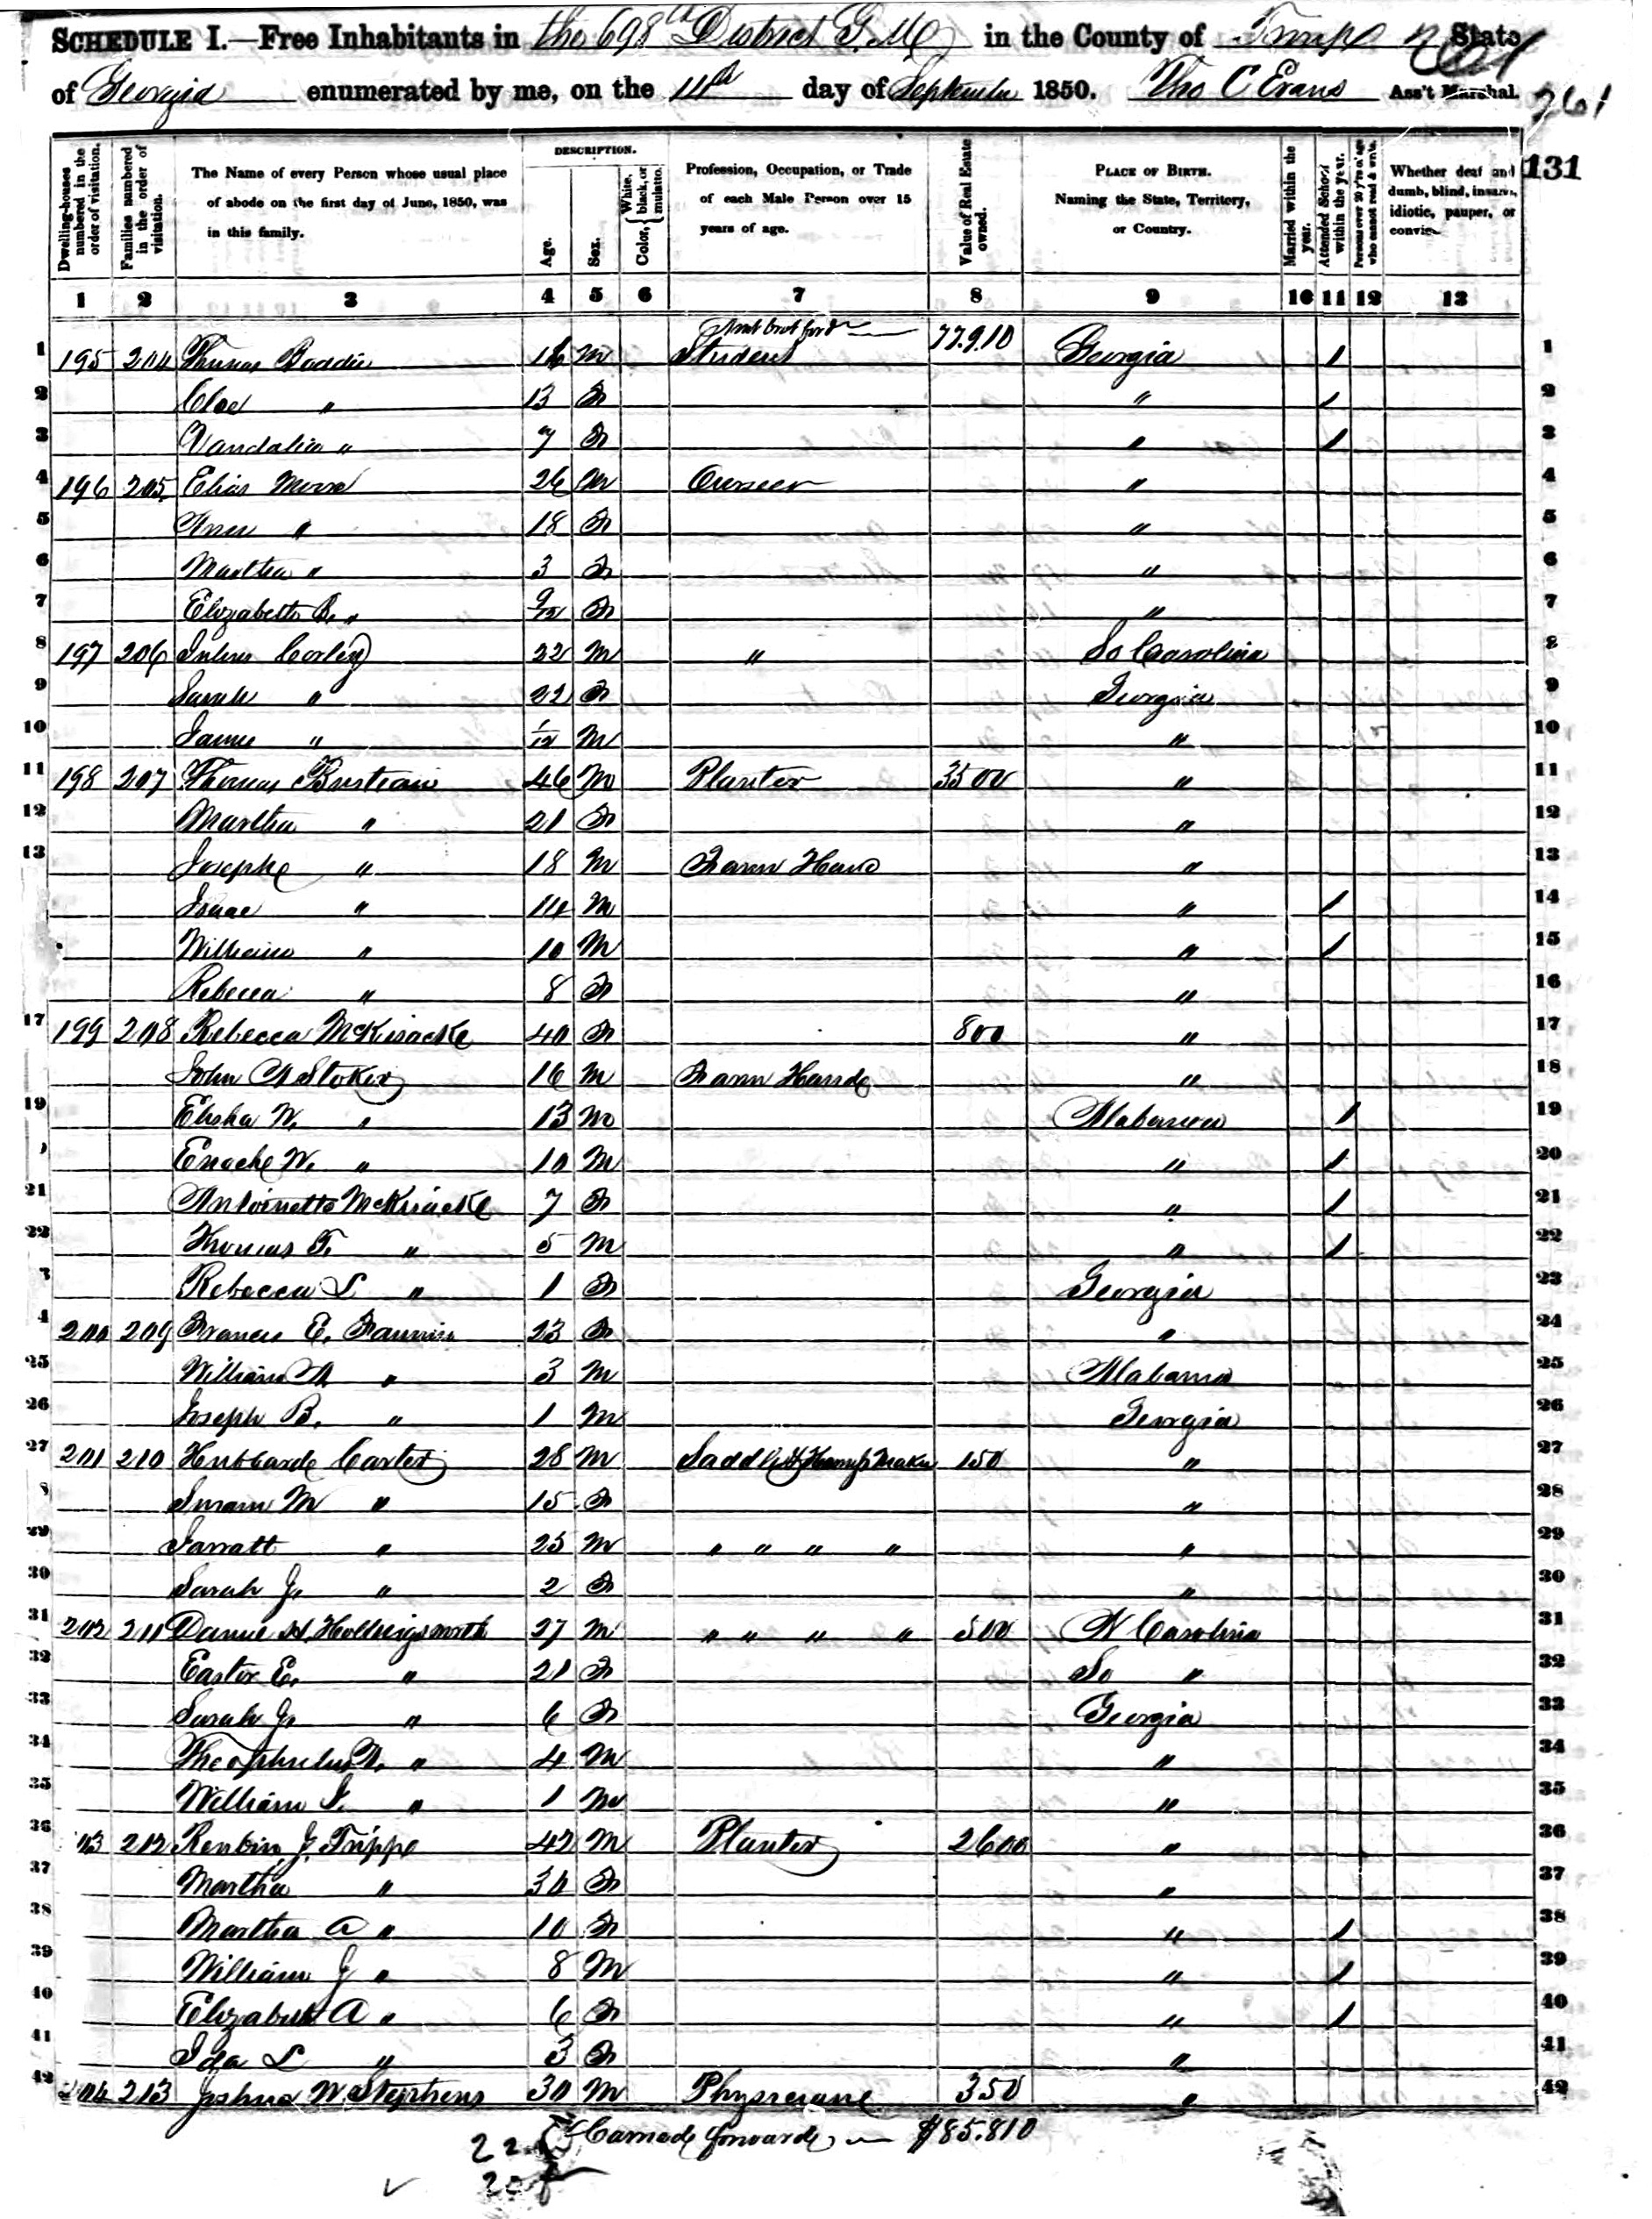 SCHEDULE I.—Free Inhabitants in the 698th District G. M. in the County of Troup State
of Georgia enumerated by me, on the 11th day of September 1850. Tho C Evans Ass't Marshal.
261
131
DESCRIPTION.
Dwelling-houses numbered in the order of visitation.
Families numbered in the order of visitation.
The Name of every Person whose usual place of abode on the first day of June, 1850, was in this family.
Age.
Sex.
Color, { White, black, or mulatto.
Profession, Occupation, or Trade of each Male Person over 15 years of age.
Value of Real Estate owned.
PLACE OF BIRTH. Naming the State, Territory, or Country.
Married within the year.
Attended School within the year.
Persons over 20 y'rs of age who cannot read & write.
Whether deaf and dumb, blind, insane, idiotic, pauper, or convict.
1 2 3 4 5 6 7 8 9 10 11 12 13
Amt brot ford 77.910
1 195 204 Thomas Boddie 16 M Student Georgia 1 1
2 Cloe " 13 F " 1 2
3 Vandalia " 7 F " 1 3
4 196 205 Elias Moore 26 M Overseer " 4
5 " 18 F " 5
6 Martha " 3 F " 6
7 Elizabeth B. " 9/12 F " 7
8 197 206 Corley 22 M " So Carolina 8
9 Sarah " 22 F Georgia 9
10 James " 1/12 M " 10
11 198 207 Thomas 46 M Planter 3500 " 11
12 Martha " 21 F " 12
13 Joseph " 18 M Farm Hand " 13
14 Isaac " 14 M " 1 14
15 William " 10 M " 1 15
16 Rebecca " 8 F " 16
17 199 208 Rebecca McKisack 40 F 800 " 17
18 John A Stoker 16 M Farm Hand " 18
19 Elisha W. " 13 M Alabama 1 19
20 Enoch W. " 10 M " 1 20
21 Antoinette McKisack 7 F " 1 21
22 Thomas F. " 5 M " 1 22
23 Rebecca L " 1 F Georgia 23
24 200 209 Frances E. Fannin 23 F " 24
25 William A " 3 M Alabama 25
26 Joseph B. " 1 M Georgia 26
27 201 210 Hubbard Carter 28 M Saddle & Harness Maker 150 " 27
28 Susan M " 15 F " 28
29 Jarratt " 25 M " " " " " 29
30 Sarah J. " 2 F " 30
31 202 211 Daniel H. Hollingsworth 27 M " " " " 500 N Carolina 31
32 Easter E. " 21 F So " 32
33 Sarah J. " 6 F Georgia 33
34 Theophilus A. " 4 M " 34
35 William J. " 1 M " 35
36 203 212 Reubin J. Trippe 42 M Planter 2600 " 36
37 Martha " 30 F " 37
38 Martha A " 10 F " 1 38
39 William J " 8 M " 1 39
40 Elizabeth A " 6 F " 1 40
41 Ida L " 3 F " 41
42 204 213 Joshua W. Stephens 30 M Physician 350 " 42
Carried forward $85.810
22
20 f